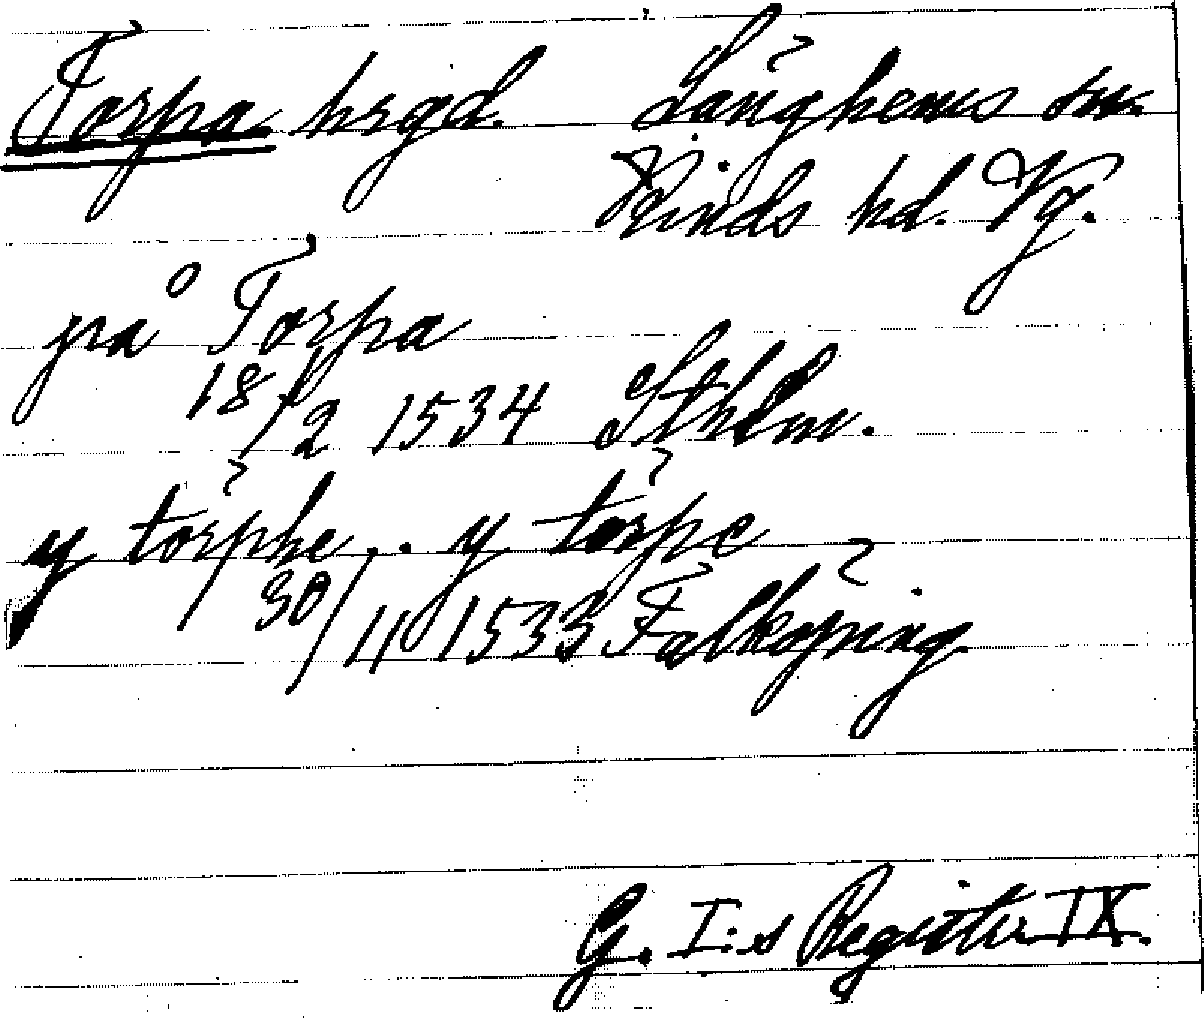 Torpa hrgd. Länghems sn.
Kinds hd. Vg.
på Torpa
18/2 1534 Sthlm.
y torphe .. y torpe
30/11 1533 Falköping
G. I:s Register IX.